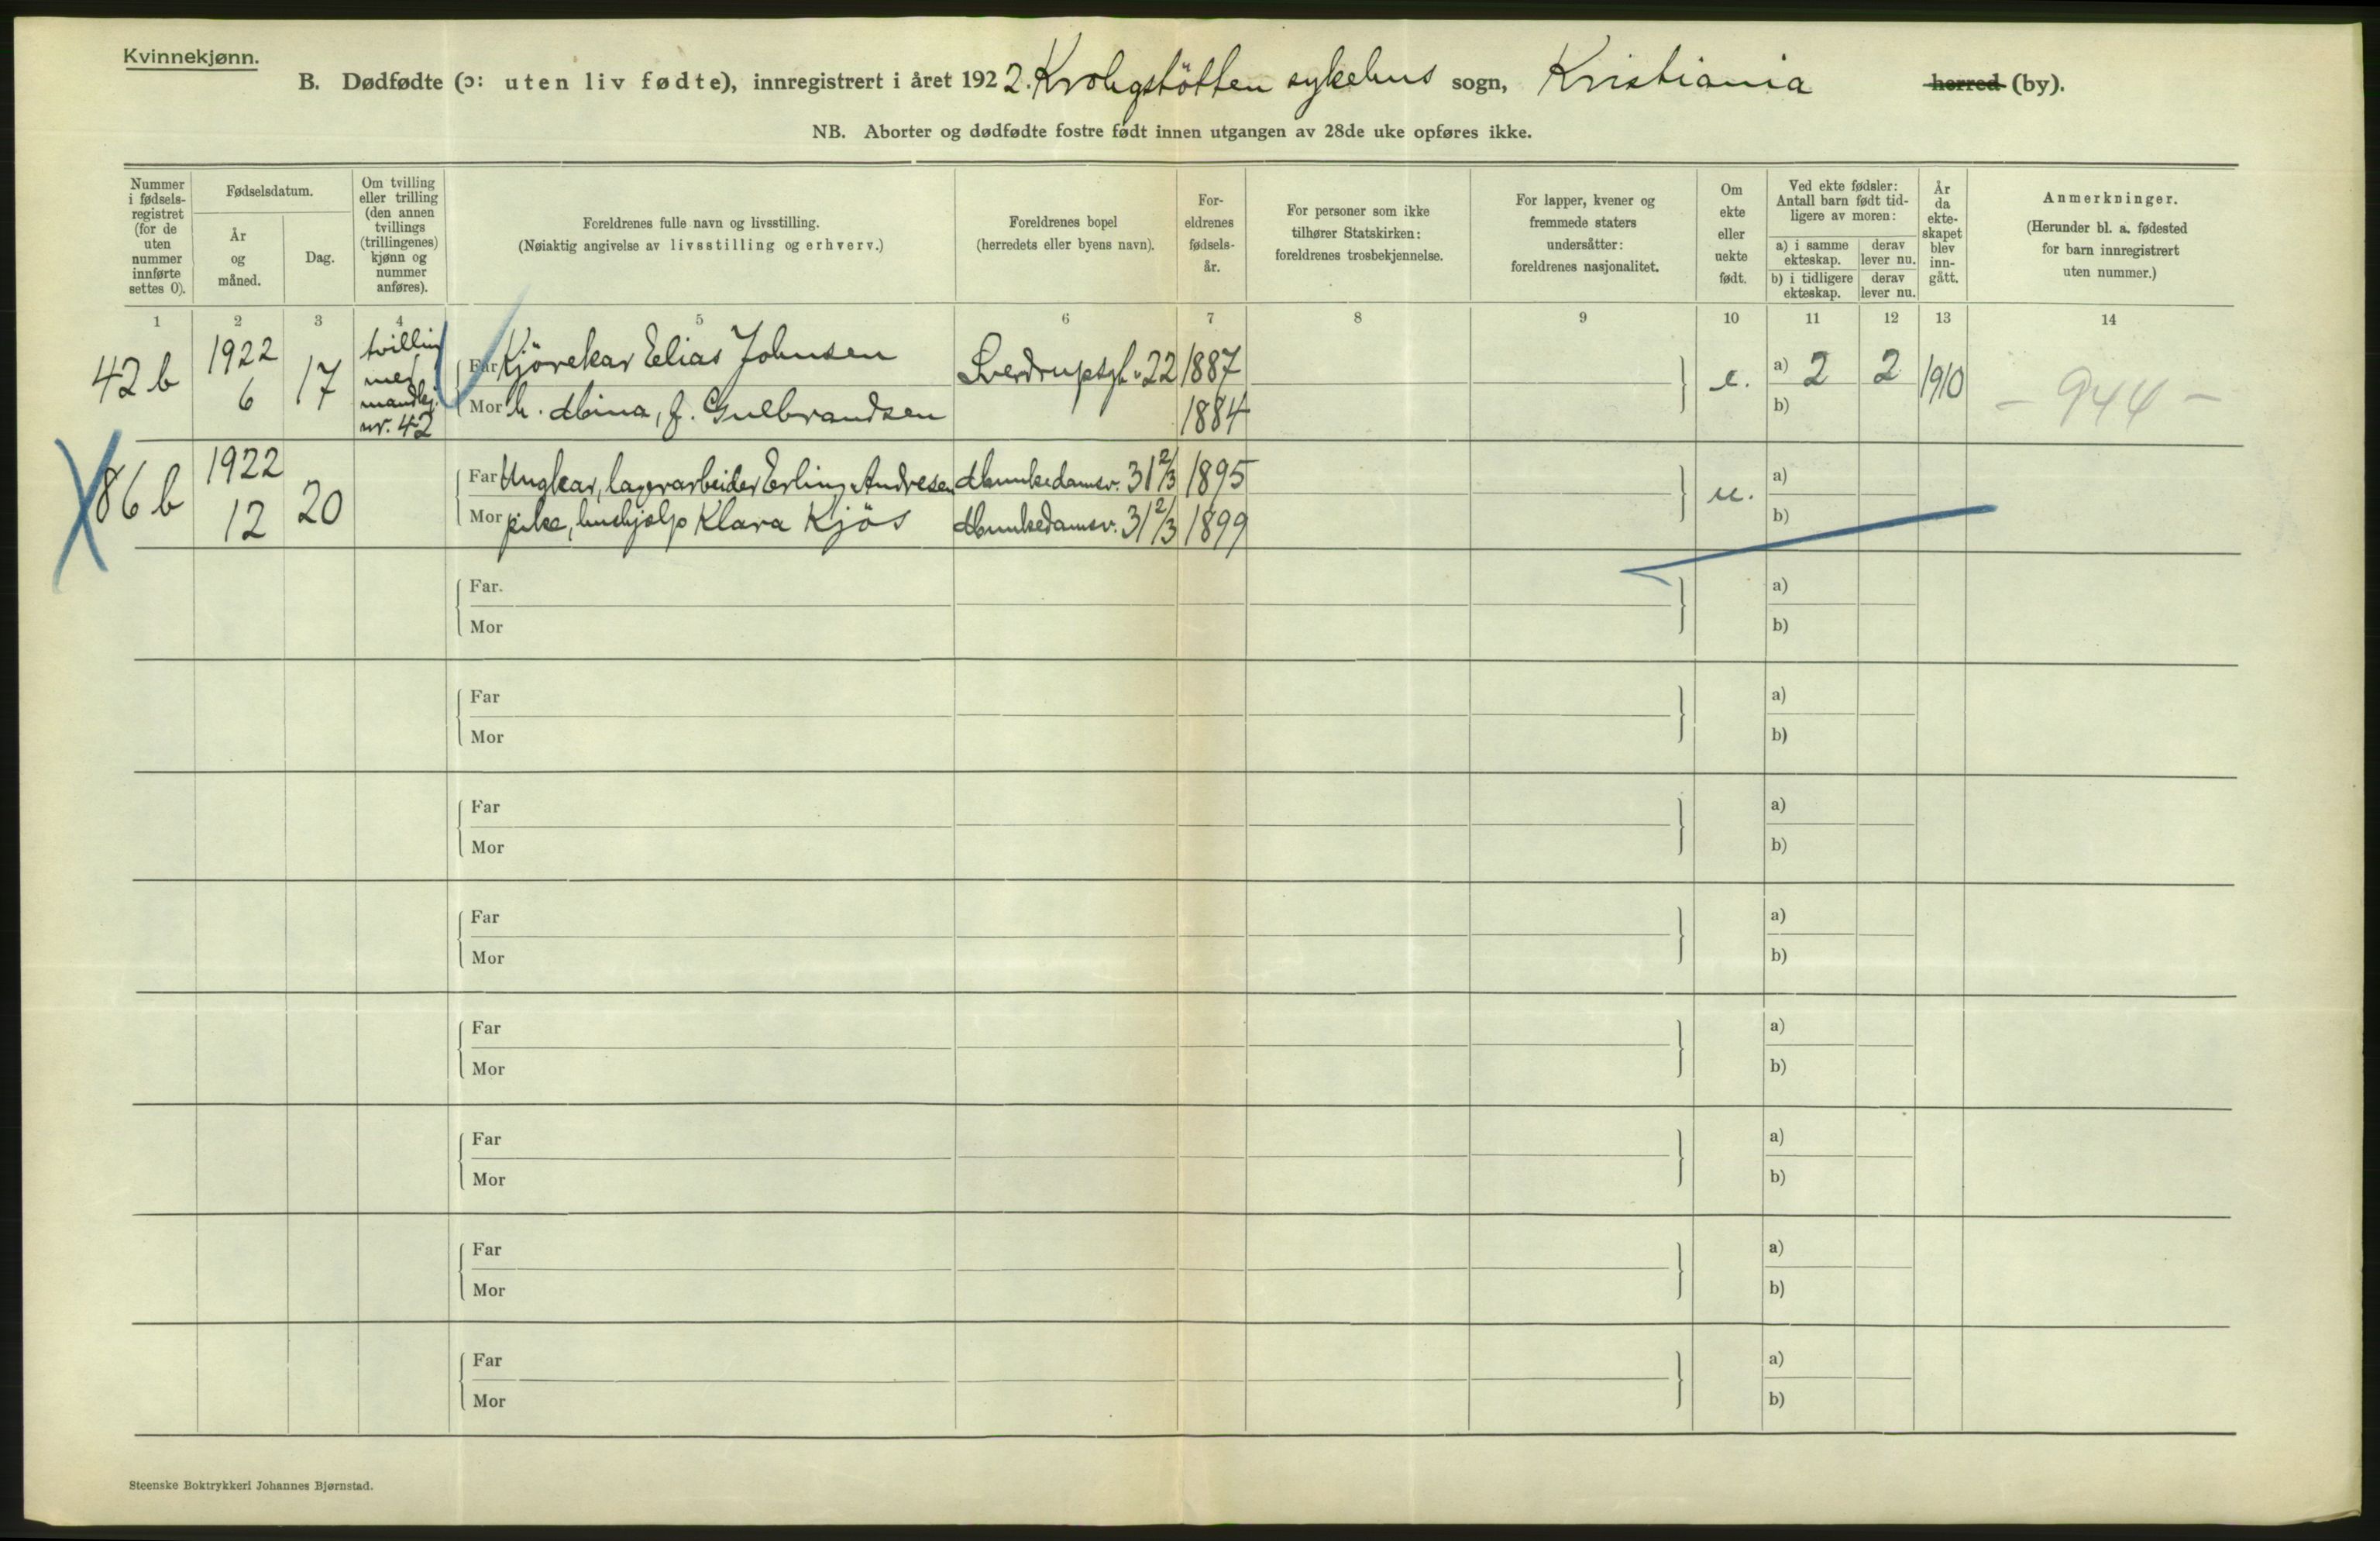 Kvinnekjønn.
B. Dødfødte (ɔ: uten liv fødte), innregistrert i året 1922. Krohgstötten sykehus sogn, Kristiania herred (by).
NB. Aborter og dødfødte fostre født innen utgangen av 28de uke opføres ikke.
Nummer
i fødsels-
registret
(for de
uten
nummer
innførte
settes 0).
Fødselsdatum.
År
og
måned.
Dag.
Om tvilling
eller trilling
(den annen
tvillings
(trillingenes)
kjønn og
nummer
anføres).
Foreldrenes fulle navn og livsstilling.
(Nøiaktig angivelse av livsstilling og erhverv.)
Foreldrenes bopel
(herredets eller byens navn).
For-
eldrenes
fødsels-
år.
For personer som ikke
tilhører Statskirken:
foreldrenes trosbekjennelse.
For lapper, kvener og
fremmede staters
undersåtter:
foreldrenes nasjonalitet.
Om
ekte
eller
uekte
født.
Ved ekte fødsler:
Antall barn født tid-
ligere av moren:
a) i samme
ekteskap.
derav
lever nu.
b) i tidligere
ekteskap.
derav
lever nu.
År
da
ekte-
skapet
blev
inn-
gått.
Anmerkninger.
(Herunder bl. a. fødested
for barn innregistrert
uten nummer.)
1 2 3 4 5 6 7 8 9 10 11 12 13 14
42 b
1922
6
17
tvilling
med
mandkj.
nr. 42
Far Kjörekar Elias Johnsen
Sverdrupsgt. 22 1887
Mor h. Mina, f. Gulbrandsen
1884
e.
a) 2 2 1910
b)
- 944 -
86 b
1922
12
20
Far Ungkar, lagerarbeider Erling Andresen Munkedamsv. 31 2/3 1895
Mor pike, hushjelp Klara Kjös Munkedamsv. 31 2/3 1899
u.
a)
b)
Far.
Mor
a)
b)
Far
Mor
a)
b)
Far
Mor
a)
b)
Far
Mor
a)
b)
Far
Mor
a)
b)
Far
Mor
a)
b)
Far
Mor
a)
b)
Far
Mor
a)
b)
Steenske Boktrykkeri Johannes Bjørnstad.